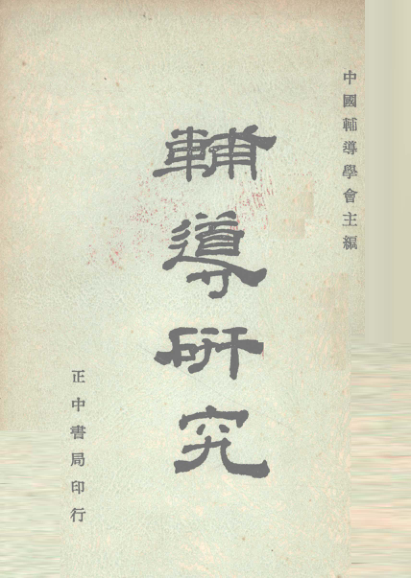 中國輔導學會主編
輔導研究
正中書局印行